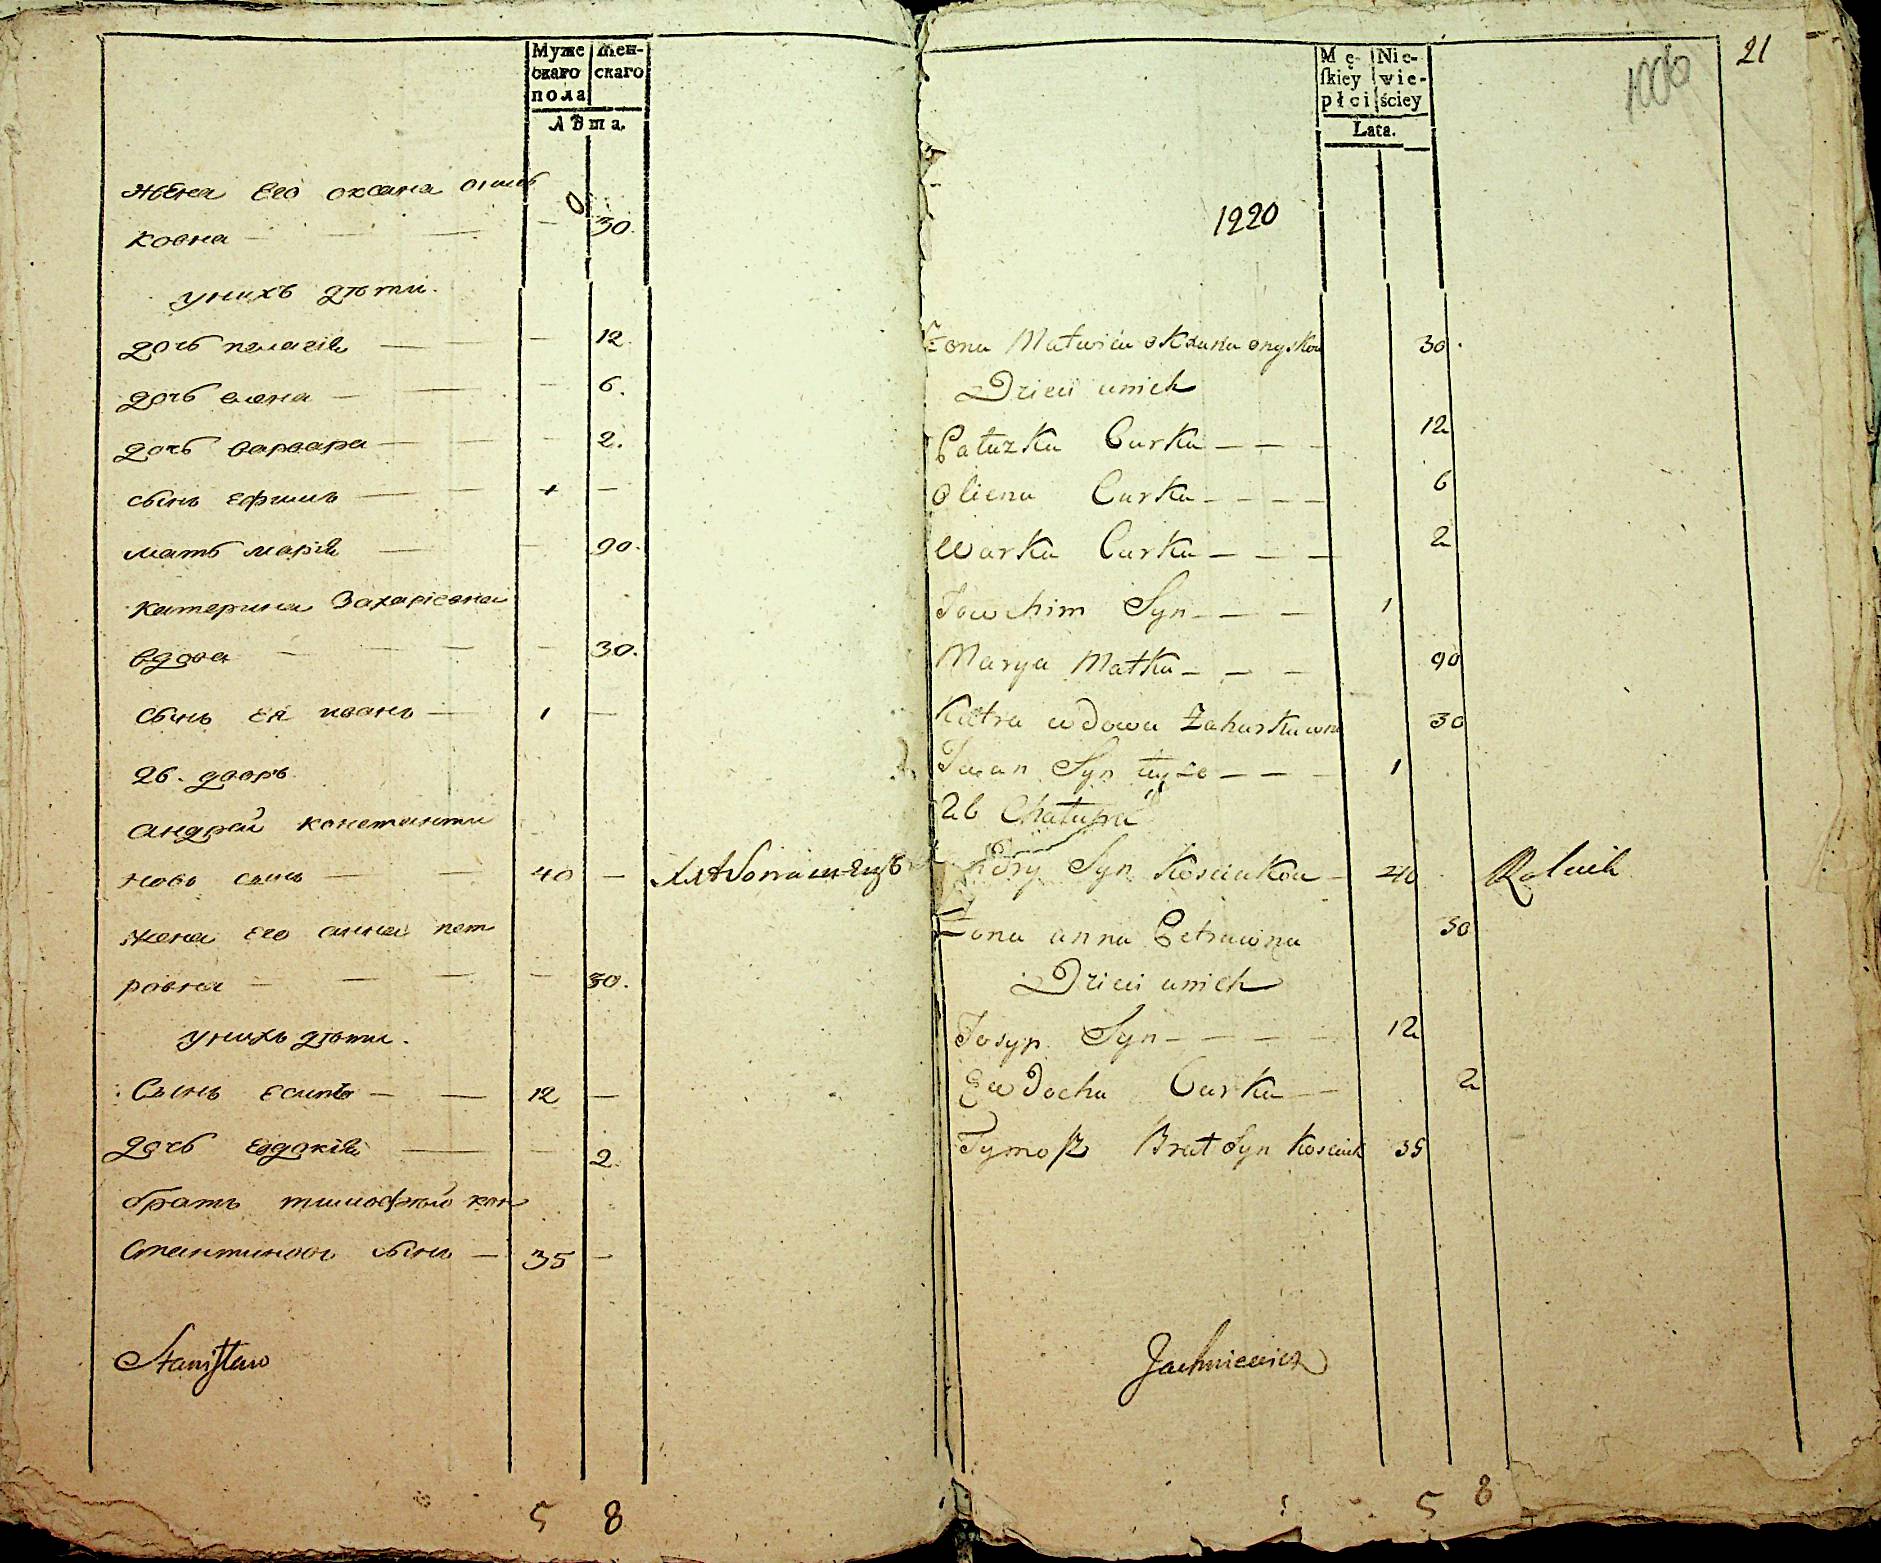 Муже Жен-
скаго скаго
пола
Лѣта.
жена Его оксана онись
ковна — — — — 30.
унихъ дѣти.
дочь пелагія — — — 12.
дочь елена — — — 6.
дочь варвара — — — 2.
сынъ ефимъ — — 1 —
мать марія — — 90.
катерина Захаріевна
вдова — — — — 30.
сынъ Ея иванъ — 1 —
26. дворъ
андрей константи
новъ сынъ — — 40 — хлѣбопашецъ
жена его анна пет
ровна — — — — 30.
унихъ дѣти.
Сынъ есипъ — — 12 —
дочь евдокія — — 2.
братъ тимофѣй кон
стантиновъ сынъ — 35 —
Stanisław
5 8
21
1006
Mę- Nie-
ſkiey wie-
płci ściey
Lata.
1220
Żona Matwieia oKsana onyskow 30.
Dzieci unich
Pałazka Curka — — — 12
Oliena Curka — — — — 6
Warka Curka — — — 2
Jowchim Syn — — — 1
Marya Matka — — — 90
Katra wdowa Zaharkawna 30
Iwan Syn tyże — — — 1
26 Chałupa
Syn Kosciukow — 40 Rolnik
Żona anna Petrawna 30
Dzieci unich
Josyp Syn — — — — 12
Ewdocha Curka — — 2
Tymosz Brat Syn Kosciuk 35
Jachniewicz
5 8